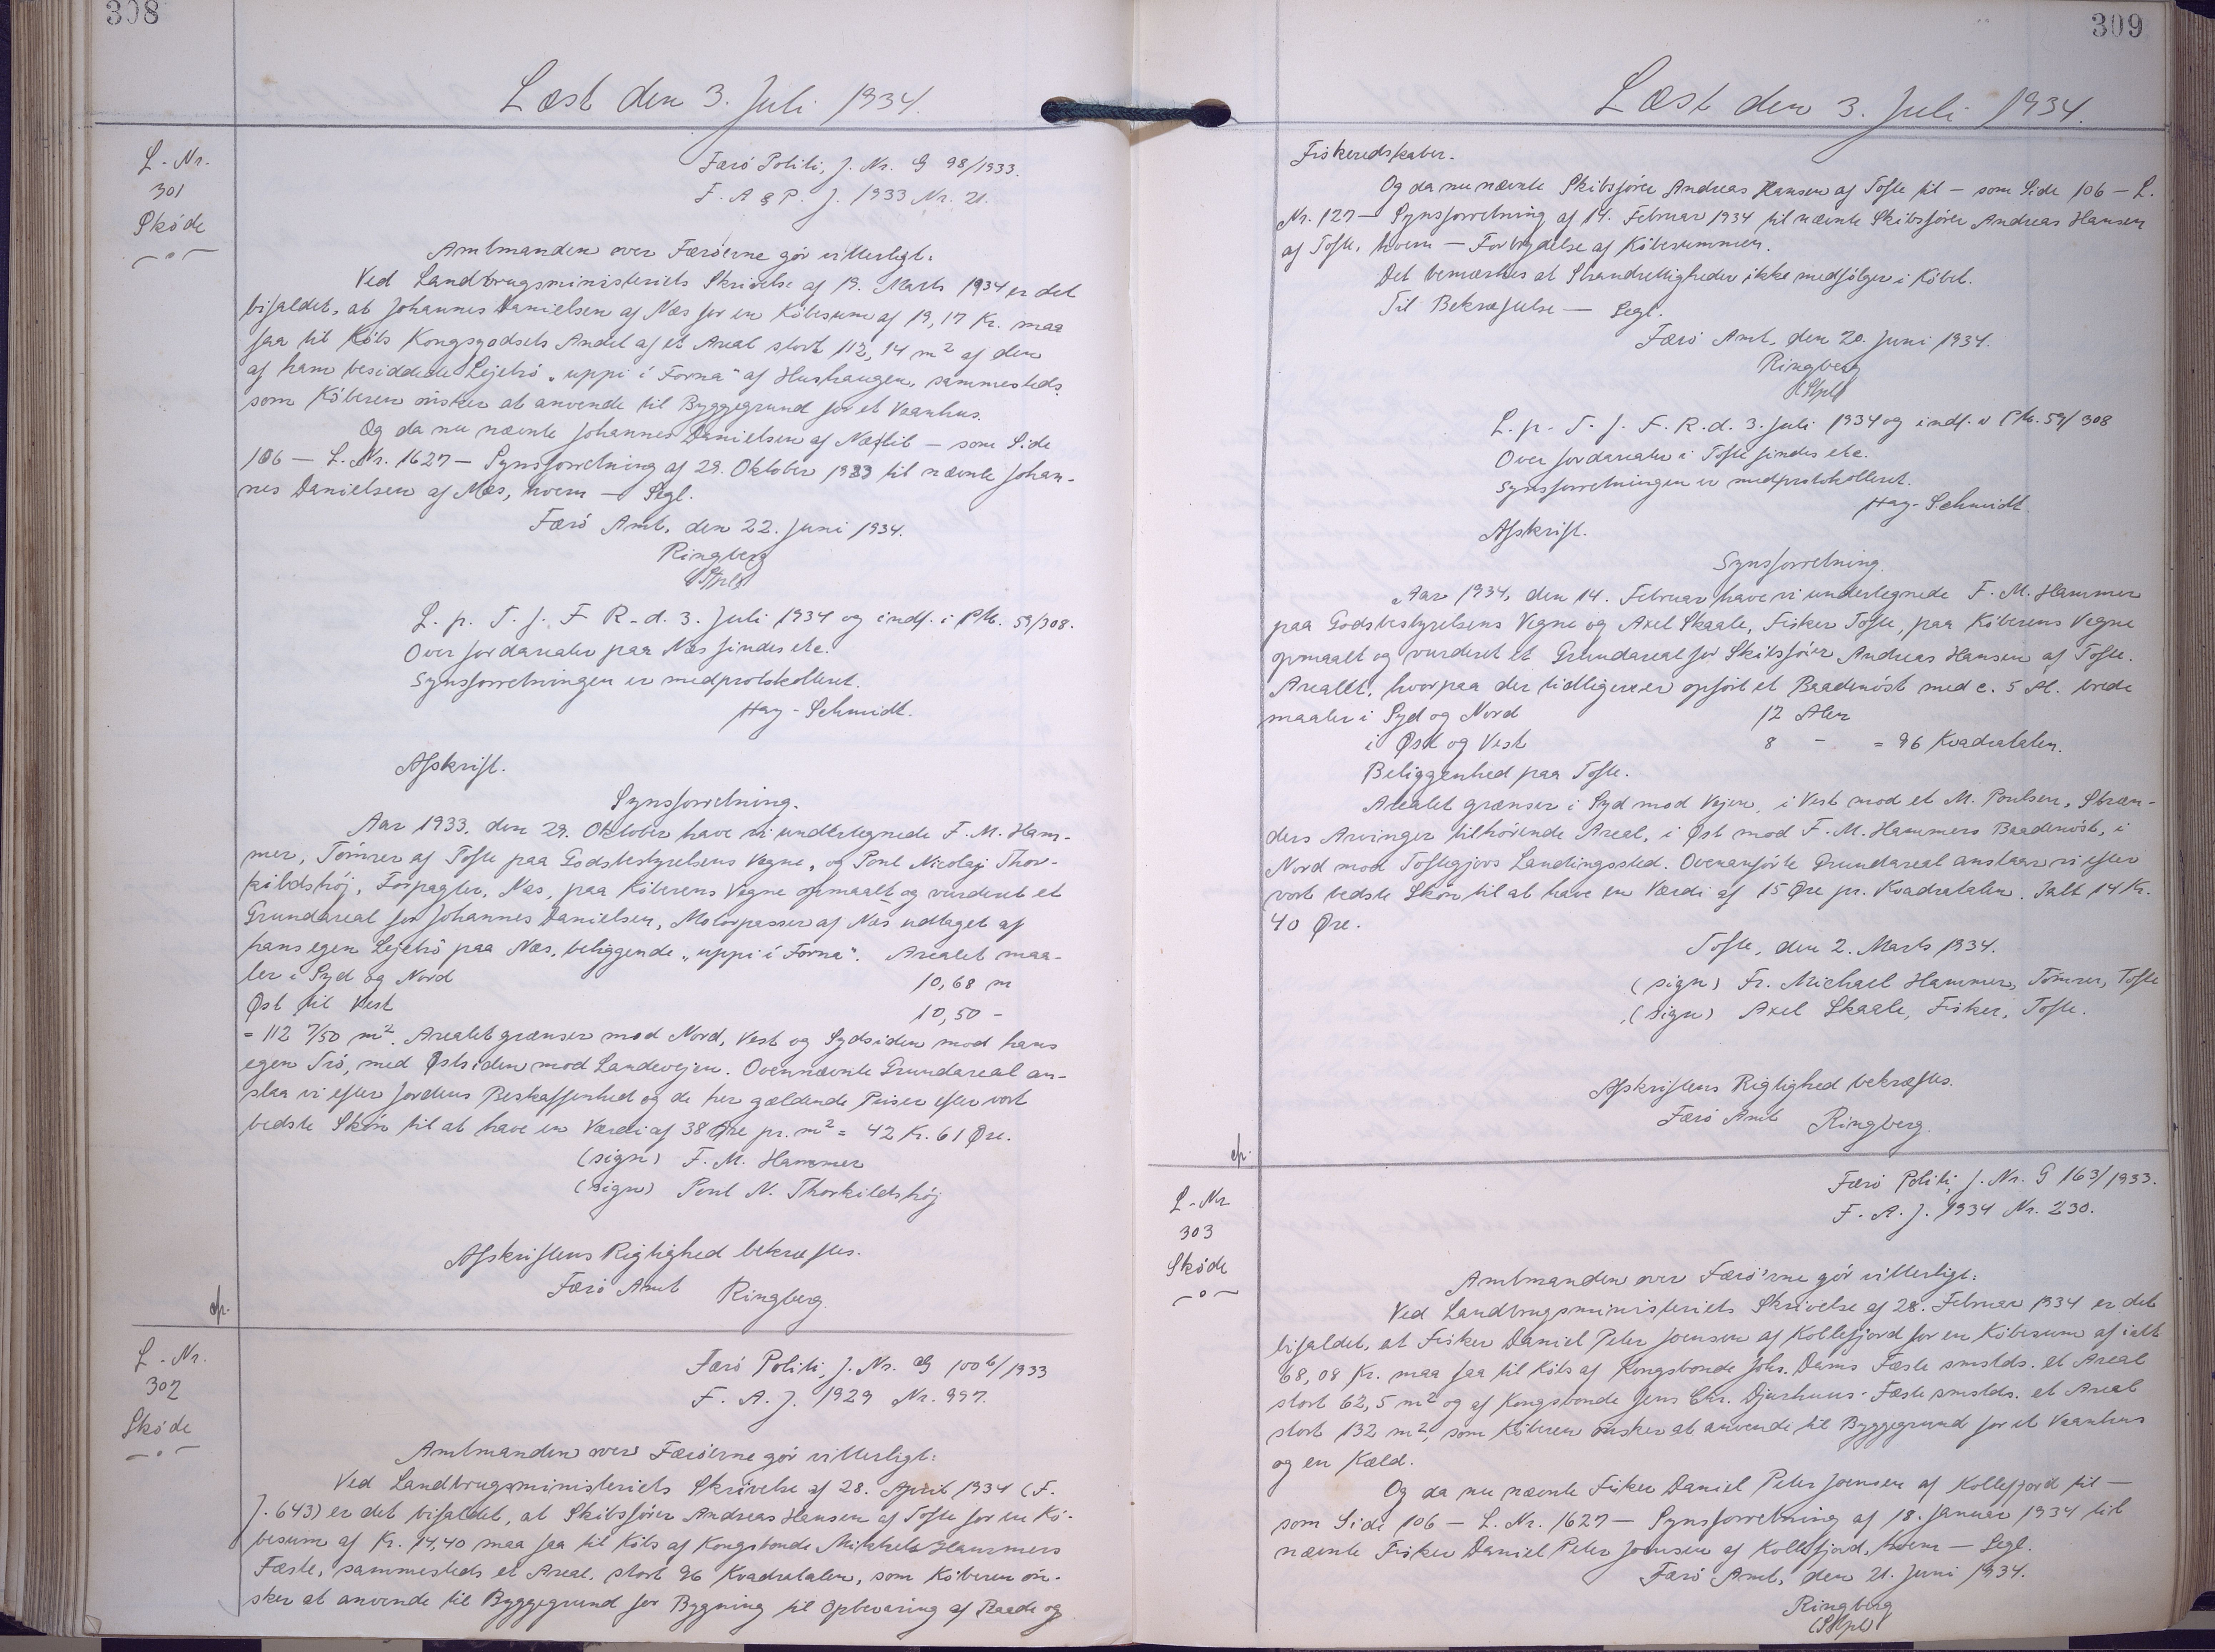 308
Læst den 3. Juli 1934.
L. Nr.
301
Sköde
Færö Politi, J. Nr. G 98/1933.
F. A & P. J. 1933 Nr. 21.
Amtmanden over Færöerne gör vitterligt:
Ved Landbrugsministeriets Skrivelse af 19. Marts 1934 er det
bifaldet, at Johannes Danielsen af Næs for en Köbesum af 19,17 Kr. maa
faa til Köbs Kongsgodsets Andel af et Areal stort 112,14 m² af den
af ham besiddede Lejetrö „uppi í Forna" af Hushaugen, sammesteds,
som Köberen önsker at anvende til Byggegrund for et Vaanhus.
Og da nu nævnte Johannes Danielsen af Næs til — som Side
106 — L. Nr. 1627 — Synsforretning af 29. Oktober 1933 til nævnte Johan-
nes Danielsen af Næs, hvem — Segl.
Færö Amt, den 22. Juni 1934.
Ringberg
L. p. T. f. F. R. d. 3. Juli 1934 og indf. i PM. 59/308.
Over Jordarealer paa Næs findes etc.
Synsforretningen er medprotokolleret.
Hay-Schmidt.
Afskrift.
Synsforretning.
Aar 1933, den 29. Oktober have vi undertegnede F. M. Ham-
mer, Tömrer af Tofte paa Godsbestyrelsens Vegne, og Poul Nicolaj Thor-
kildshöj, Forpagter, Næs, paa Köberens Vegne opmaalt og vurderet et
Grundareal for Johannes Danielsen, Motorpasser af Næs udtaget af
hans egen Lejetrö paa Næs, beliggende „uppi í Forna". Arealet maa-
ler i Syd og Nord 10,68 m
Øst til Vest 10,50 -
= 112 7/50 m². Arealet grænser mod Nord, Vest og Sydsiden mod hans
egen Trö, med Østsiden mod Landevejen. Ovennævnte Grundareal an-
slaa vi efter Jordens Beskaffenhed og de her gældende Priser efter vort
bedste Skön til at have en Værdi af 38 Øre pr. m² = 42 Kr. 61 Øre.
(sign) F. M. Hammer
(sign) Poul N. Thorkildshöj
Afskriftens Rigtighed bekræftes.
Færö Amt Ringberg.
L. Nr.
302
Sköde
Færö Politi, J. Nr. G 100 b/1933
F. A. J. 1929 Nr. 997.
Amtmanden over Færöerne gör vitterligt:
Ved Landbrugsministeriets Skrivelse af 28. April 1934 (F.
J. 643) er det bifaldet, at Skibsförer Andreas Hansen af Tofte for en Kö-
besum af Kr. 14,40 maa faa til Köbs af Kongsbonde Mikkels Hammers
Fæste, sammesteds et Areal, stort 96 Kvadratalen, som Köberen ön-
sker at anvende til Byggegrund for Bygning til Opbevaring af Baade og
309
Læst den 3. Juli 1934.
Fiskeredskaber.
Og da nu nævnte Skibsförer Andreas Hansen af Tofte til — som Side 106 — L.
Nr. 127 — Synsforretning af 14. Februar 1934 til nævnte Skibsförer Andreas Hansen
af Tofte, hvem — Forbrydelse af Köbesummen.
Det bemærkes at Strandrettigheder ikke medfölger i Köbet.
Til Bekræftelse — Segl.
Færö Amt, den 20. Juni 1934.
Ringberg
L. p. T. f. F. R. d. 3. Juli 1934 og indf. i PM. 59/308
Over Jordarealer i Tofte findes etc.
Synsforretningen er medprotokolleret.
Hay-Schmidt
Afskrift.
Synsforretning.
Aar 1934, den 14. Februar have vi undertegnede F. M. Hammer
paa Godsbestyrelsens Vegne og Axel Skaale, Fisker Tofte, paa Köberens Vegne
opmaalt og vurderet et Grundareal for Skibsförer Andreas Hansen af Tofte.
Arealet, hvorpaa der tidligere er opfört et Baadenöst med c. 5 Al. brede
maaler i Syd og Nord 12 Alen
i Øst og Vest 8 - = 96 Kvadratalen.
Beliggenhed paa Tofte.
Arealet grænser i Syd mod Vejen, i Vest mod et M. Poulsen, Stræn-
ders Arvinger tilhörende Areal, i Øst mod F. M. Hammers Baadenöst, i
Nord mod Toftegjors Landingssted. Ovenanförte Grundareal anslaar vi efter
vort bedste Skön til at have en Værdi af 15 Øre pr. Kvadratalen. Ialt 14 Kr.
40 Øre.
Tofte, den 2. Marts 1934.
(sign) Fr. Michael Hammer, Tömrer, Tofte
(sign) Axel Skaale, Fisker, Tofte.
Afskriftens Rigtighed bekræftes.
Færö Amt Ringberg.
L. Nr
303
Sköde
Færö Politi, J. Nr. G 163/1933.
F. A. J. 1934 Nr. 230.
Amtmanden over Færö'rne gör vitterligt:
Ved Landbrugsministeriets Skrivelse af 28. Februar 1934 er det
bifaldet, at Fisker Daniel Peter Joensen af Kollefjord for en Köbesum af ialt
68,08 Kr. maa faa til Köbs af Kongsbonde Johs. Dams Fæste smstds. et Areal
stort 62,5 m² og af Kongsbonde Jens Chr. Djurhuus' Fæste smstds. et Areal
stort 132 m², som Köberen önsker at anvende til Byggegrund for et Vaanhus
og en Kæld.
Og da nu nævnte Fisker Daniel Peter Joensen af Kollefjord til —
som Side 106 — L. Nr. 1627 — Synsforretning af 18. Januar 1934 til
nævnte Fisker Daniel Peter Joensen af Kollefjord, hvem — Segl.
Færö Amt, den 21. Juni 1934.
Ringberg